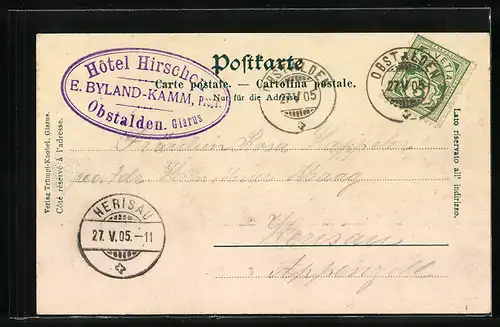 Postkarte
Carte postale. — Cartolina postale.
Nur für die Adresse
Hôtel Hirschen
E. BYLAND-KAMM, Propr.
Obstalden. Glarus
OBSTALDEN
27.V.05
OBSTALDEN
27.V.05
HELVETIA
Fräulein Rosa
Herisau
Appenzell
HERISAU
27.V.05.-11
Verlag Trümpi-Knobel, Glarus.
Côté réservé à l'adresse.
Lato riservato all' indirizzo.